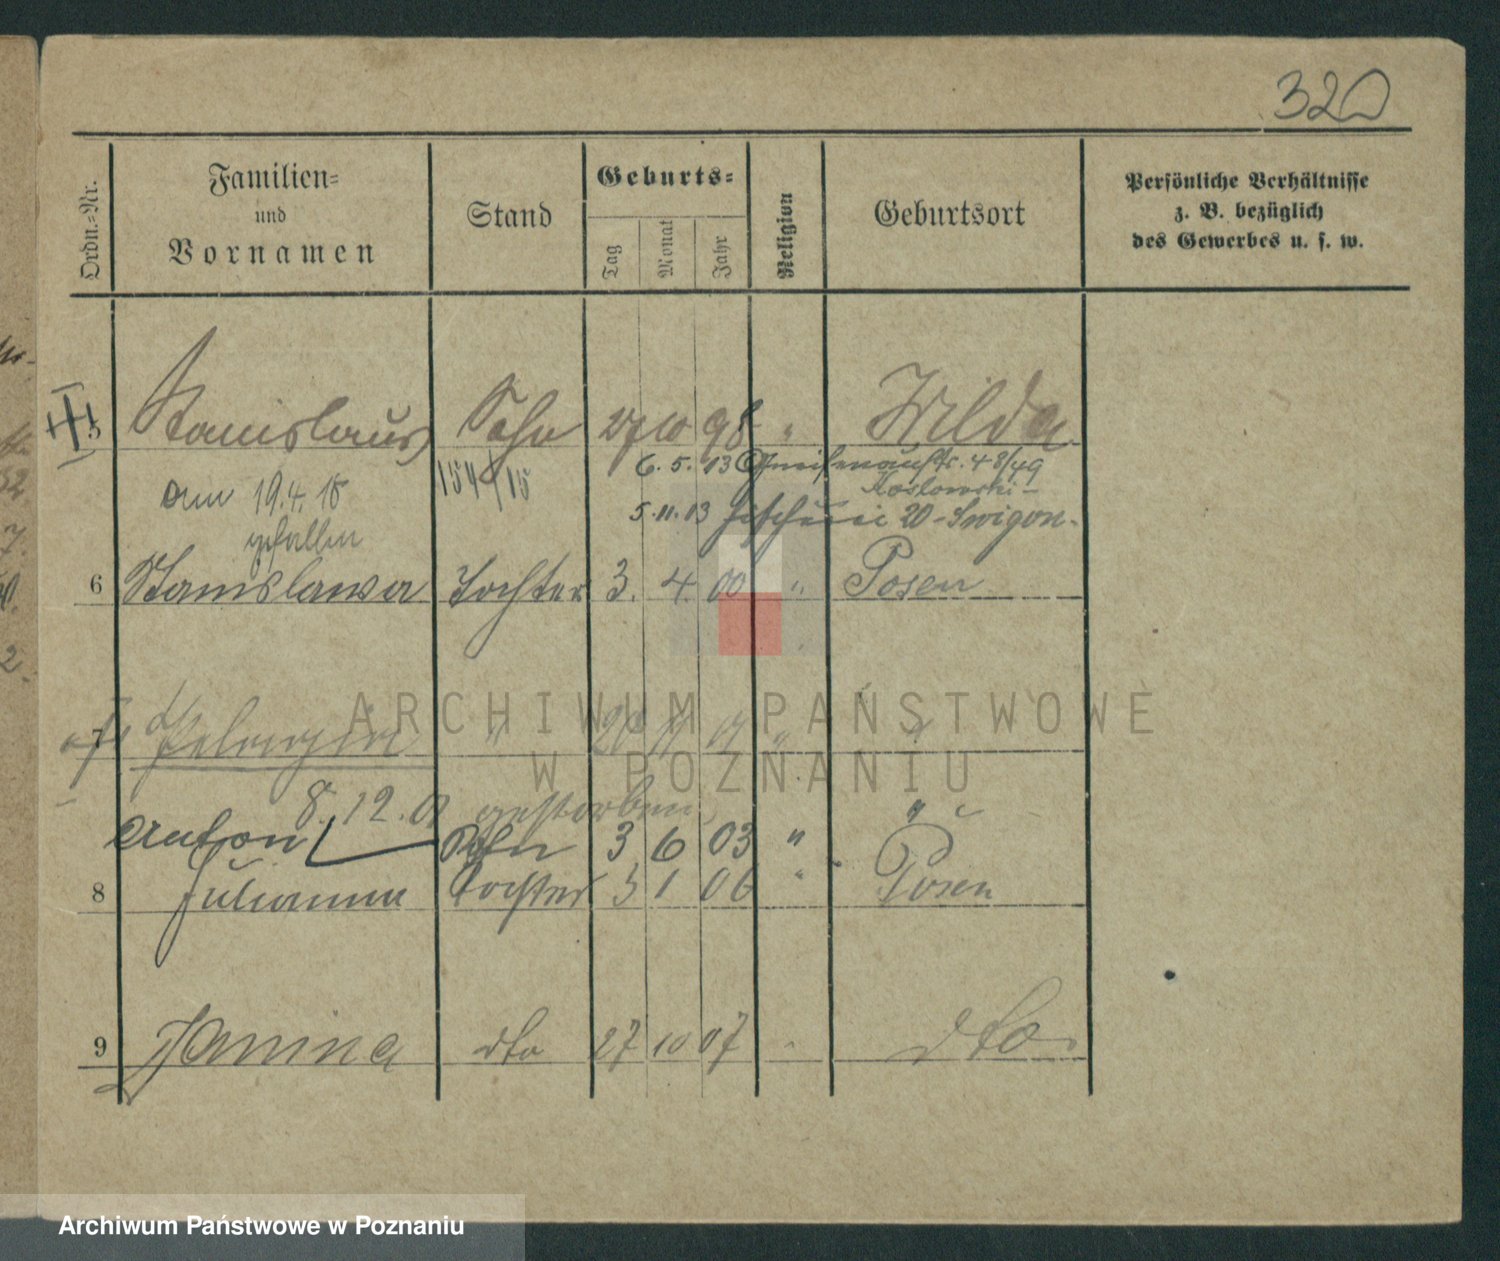 320
Ordn.-Nr.
Familien-
und
Vornamen
Stand
Geburts-
Tag
Monat
Jahr
Religion
Geburtsort
Persönliche Verhältnisse
z. B. bezüglich
des Gewerbes u. s. w.
5 Stanislaus Sohn 27 10 98 " Wilda
6. 5. 13 Gneisenaustr. 48/49
Koslowski -
am 19.4.15 154/15
5.11.13 20 - Swigon.
gefallen
6 Stanislawa Tochter 3. 4. 00 " Posen
7 Pelagia " 11 "
8. 12. 01 gestorben
Anton Sohn 3 6 03 " "
8 Julianna Tochter 3 1 06 " Posen
9 Janina dto 27 10 07 " dto.
ARCHIWUM PAŃSTWOWE
W POZNANIU
Archiwum Państwowe w Poznaniu